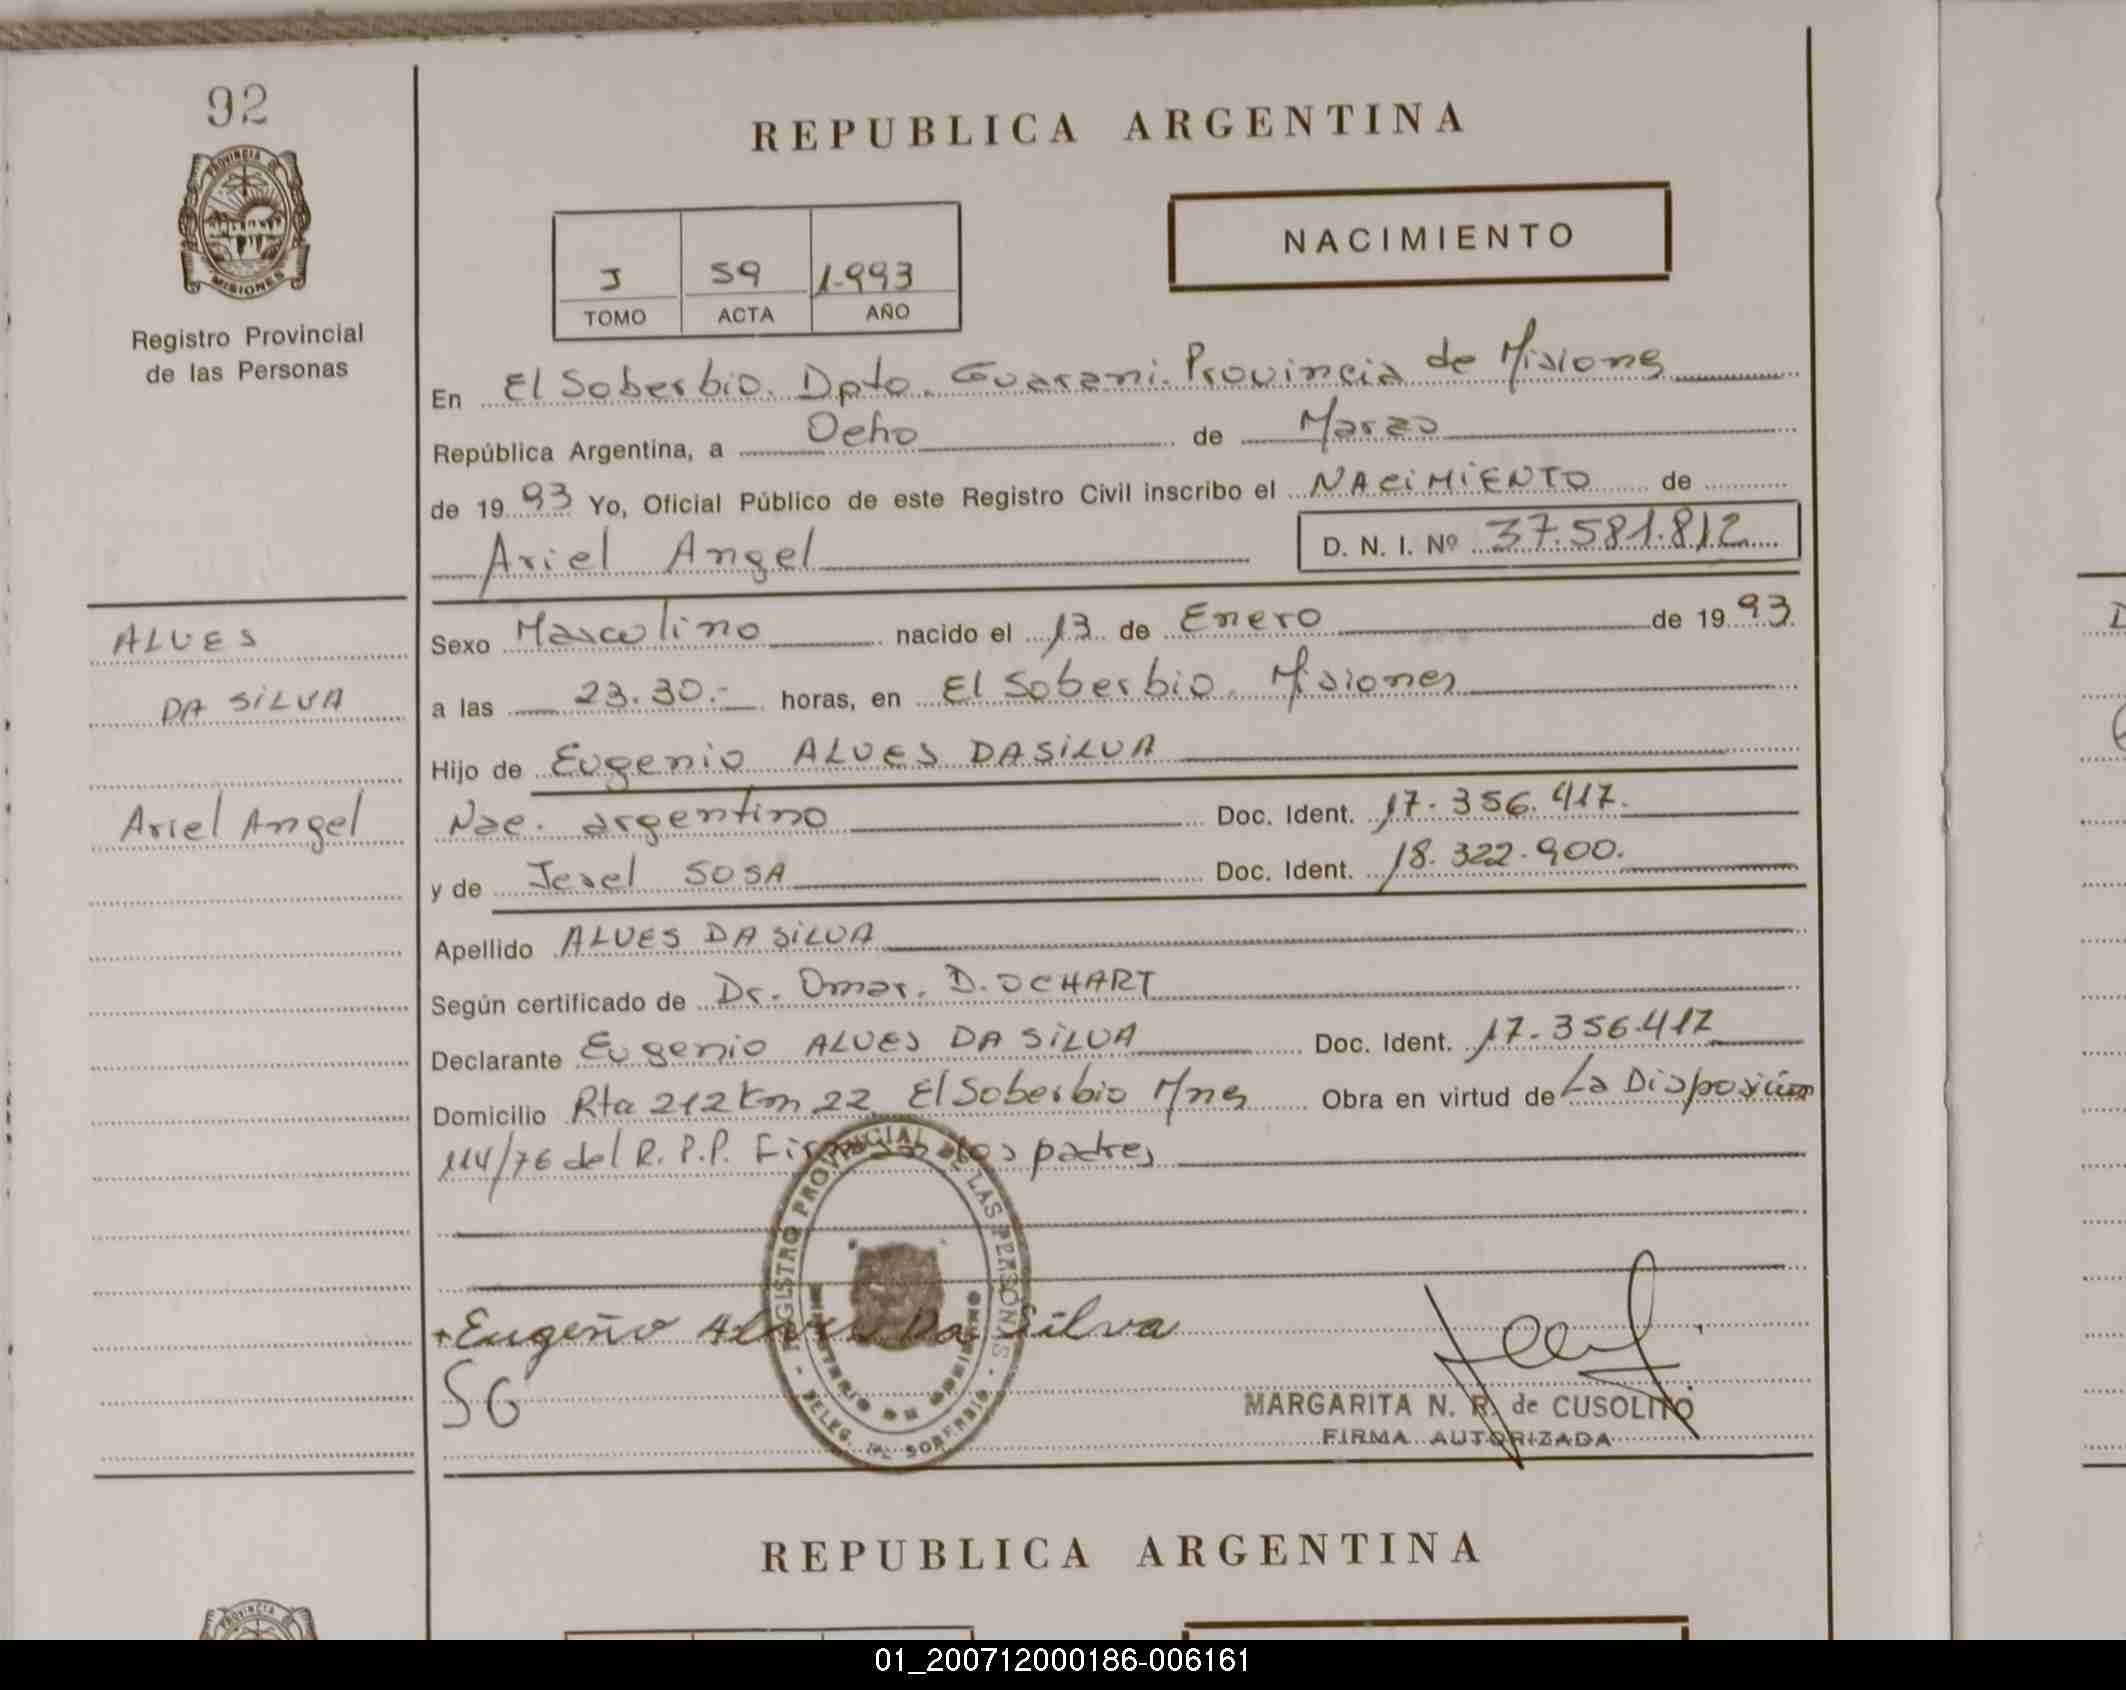 92
PROVINCIA DE
MISIONES
Registro Provincial
de las Personas
ALVES
DA SiLVA
Ariel Angel
REPUBLICA ARGENTINA
NACIMIENTO
J 59 1.993
TOMO ACTA AÑO
En El Soberbio. Dpto. Guarani. Provincia de Misiones
República Argentina, a Ocho de Marzo
de 1993 Yo, Oficial Público de este Registro Civil inscribo el NACiMiENTO de
Ariel Angel D. N. I. Nº 37.581.812
Sexo Masculino nacido el 13 de Enero de 1993.
a las 23.30.- horas, en El Soberbio. Misiones
Hijo de Eugenio ALVES DASiLVA
Nac. argentino Doc. Ident. 17.356.417.
y de Jesel SOSA Doc. Ident. 18.322.900.
Apellido ALVES DA SiLVA
Según certificado de Dr. Omar. D. OCHART
Declarante Eugenio ALVES DA SiLVA Doc. Ident. 17.356.417
Domicilio Rta 212 Km 22 El Soberbio Mnes Obra en virtud de La Disposición
114/76 del R. P.P. los padres
REGISTRO PROVINCIAL DE LAS PERSONAS
MINISTERIO DE GOBIERNO
DELEG. EL SOBERBIO
+Eugeño Alves Da Silva
SG
MARGARITA N. R. de CUSOLITO
FIRMA AUTORIZADA
REPUBLICA ARGENTINA
PROVINCIA
01_200712000186-006161